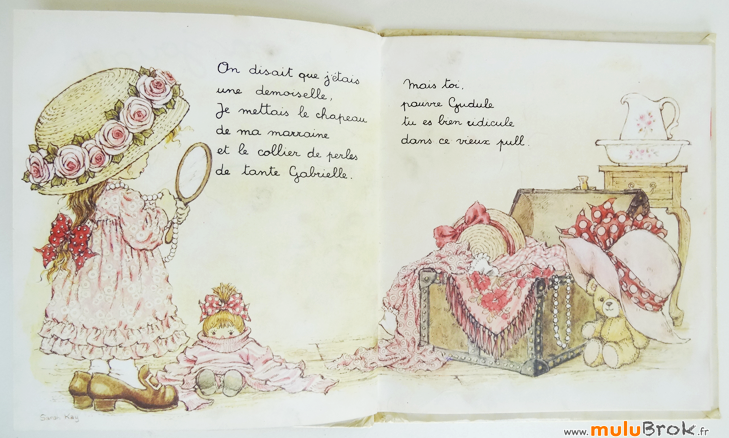 On disait que j'étais
une demoiselle,
Je mettais le chapeau
de ma marraine
et le collier de perles
de tante Gabrielle.
Mais toi,
pauvre Gudule
tu es bien ridicule
dans ce vieux pull.
Sarah Kay
www.muluBrok.fr